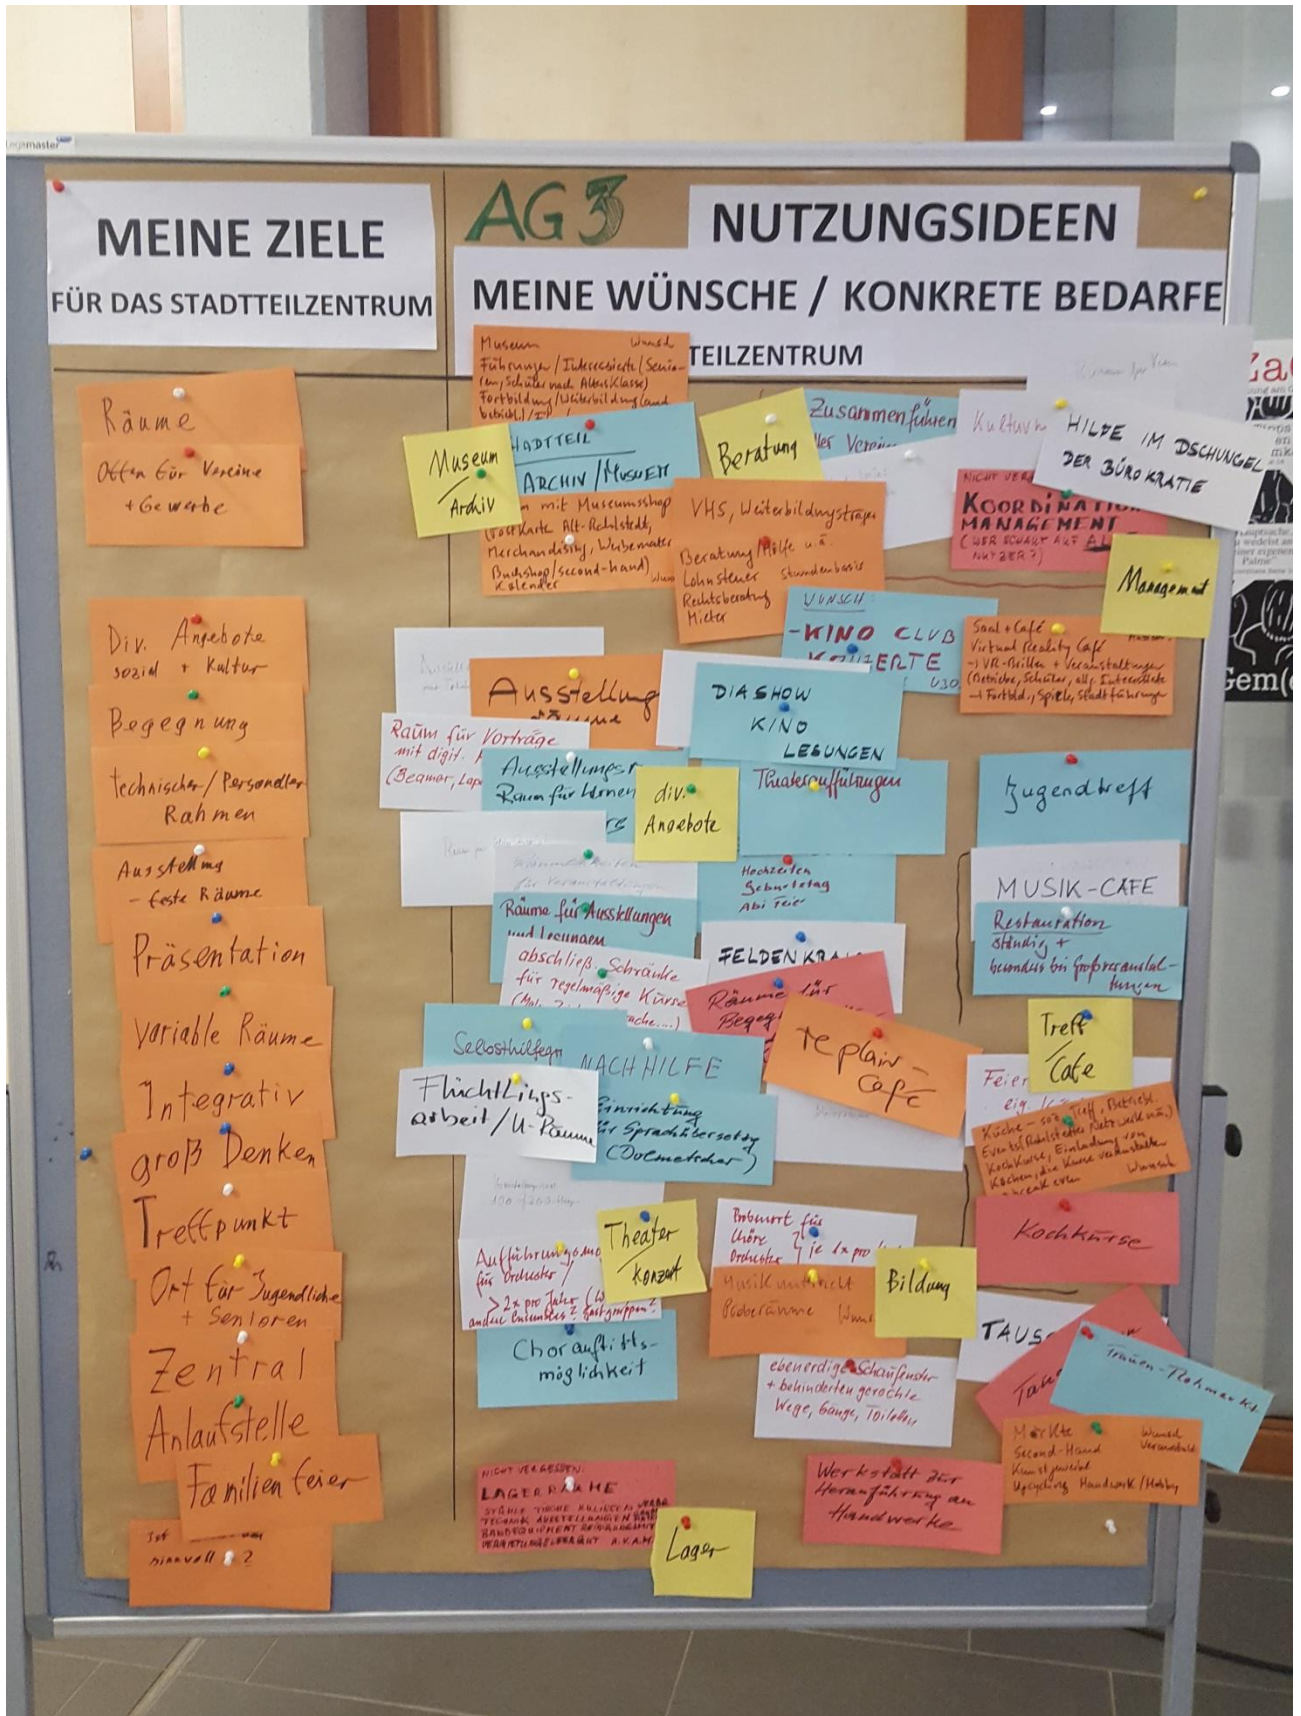 Legamaster
MEINE ZIELE
FÜR DAS STADTTEILZENTRUM
Räume
Offen für Vereine
+ Gewerbe
Div. Angebote
sozial + Kultur
Begegnung
technischer/Personeller
Rahmen
Ausstellung
- feste Räume
Präsentation
variable Räume
Integrativ
groß Denken
Treffpunkt
Ort für Jugendliche
+ Senioren
Zentral
Anlaufstelle
Familienfeier
Ist
sinnvoll ?
AG 3
NUTZUNGSIDEEN
MEINE WÜNSCHE / KONKRETE BEDARFE
TEILZENTRUM
Museum Wunsch
Führungen/Interessierte/Senio-
ren, Schüler nach Altersklasse)
Fortbildung/Weiterbildung (and
Museum
/
Archiv
TADTTEIL
ARCHIV/MUSUEM
mit Museumsshop
(Postkarte Alt-Rahlstedt,
Merchandising, Werbemater
Buchshop/second-hand)
Kalender
Beratung
Zusammenführen
ller Vereine
VHS, Weiterbildungsträger
Beratung/Hilfe u.ä.
Lohnsteuer Stundenbasis
Rechtsberatung
Mieter
Kultur
HILFE IM DSCHUNGEL
DER BÜROKRATIE
NICHT VER
KOORDINATIO
MANAGEMENT
(WER SCHAUT AUF ALLE
NUTZER?)
Management
WUNSCH:
-KINO CLUB
KONZERTE
Ü30
Saal + Café
Virtual Reality Café
→ VR-Brillen + Veranstaltungen
(Betriebe, Schüler, allg. Interessierte
→ Fortbild., Spiele, Stadtführungen
Ausstellung
räume
DIASHOW
KINO
LESUNGEN
Raum für Vorträge
mit digit.
(Beamer, Lap
Ausstellungsr
Raum für
div.
Angebote
Theateraufführungen
Jugendtreff
Hochzeiten
Geburtstag
Abi Feier
MUSIK-CAFE
Restauration
ständig +
besonders bei Großveranstal-
tungen
Räume für Ausstellungen
und Lesungen
abschließ. Schränke
für regelmäßige Kurse
FELDENKRAI
Räume für
Begeg
replair-
Café
Treff
/
Cafe
Selbsthilfegr
NACHHILFE
Flüchtlings-
arbeit/U-Räume
Einrichtung
für Sprachübersetzg
(Dolmetscher)
Feier
eig.
Küche - soz. Treff, Betriebl.
Events (Rahlstedter Netzwerk u.ä.)
Kochkurse, Einladung von
Köchen, die Kurse veranstalten
break even Wunsch
Kochkurse
Theater
/
Konzert
Aufführungsmö
für Orchester/
> 2x pro Jahr
andre Ensembles? Gastgruppen?
Probenort für
Chöre
Orchester } je 1x pro
Musikunterricht
Proberäume Wuns
Bildung
Chorauftritts-
möglichkeit
ebenerdige Schaufenster
+ behindertengerechte
Wege, Gänge, Toiletten
TAUS
Frauen-Flohmarkt
Märkte Wunsch
Second-Hand
Kunstgewerbe
Upcycling Handwerk/Hobby
NICHT VERGESSEN:
LAGERRÄUME
STÜHLE TISCHE KULISSEN
TECHNIK AUSSTELLUNGEN
Lager
Werkstatt zur
Heranführung an
Handwerke
Gem